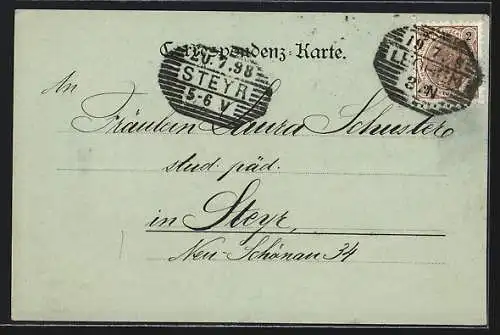 Correspondenz-Karte.
2
19.7.
20.7.98
STEYR
5-6 V
An
Fräulein Laura Schuster
stud. päd.
in Steyr,
Neu-Schönau 34